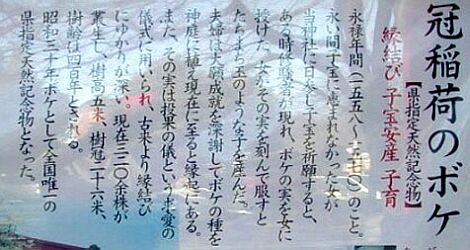 冠稲荷のボケ
【県指定天然記念物】
縁結び 子宝安産 子育
永禄年間(一五五八〜一五七〇)のこと。
永い間子宝に恵まれなかった女が
当神社に日参し子宝を祈願すると、
ある時修験者が現れ、ボケの実を女に
授けた。女がその実を刻んで服すと
たちまち玉のような子を産んだ。
夫婦は大願成就を深謝してボケの種を
神庭に植え現在に至ると縁起にある。
また、その実は投果の儀という求愛の
儀式に用いられ、古来より縁結び
にゆかりが深い。現在三二〇余株が
叢生し、樹高五米、樹冠二十六米、
樹齢は四百年とされる。
昭和三十年ボケとして全国唯一の
県指定天然記念物となった。